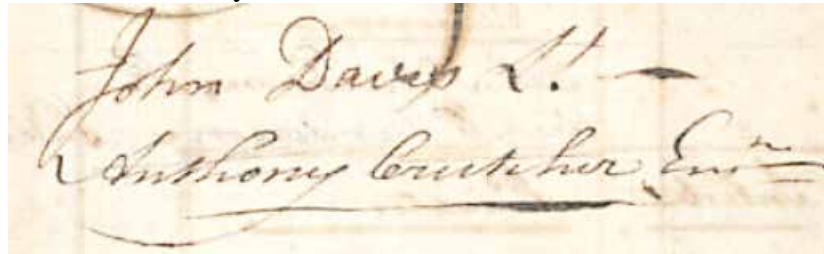 John Davis Lt.
Anthony Crutcher Ensn